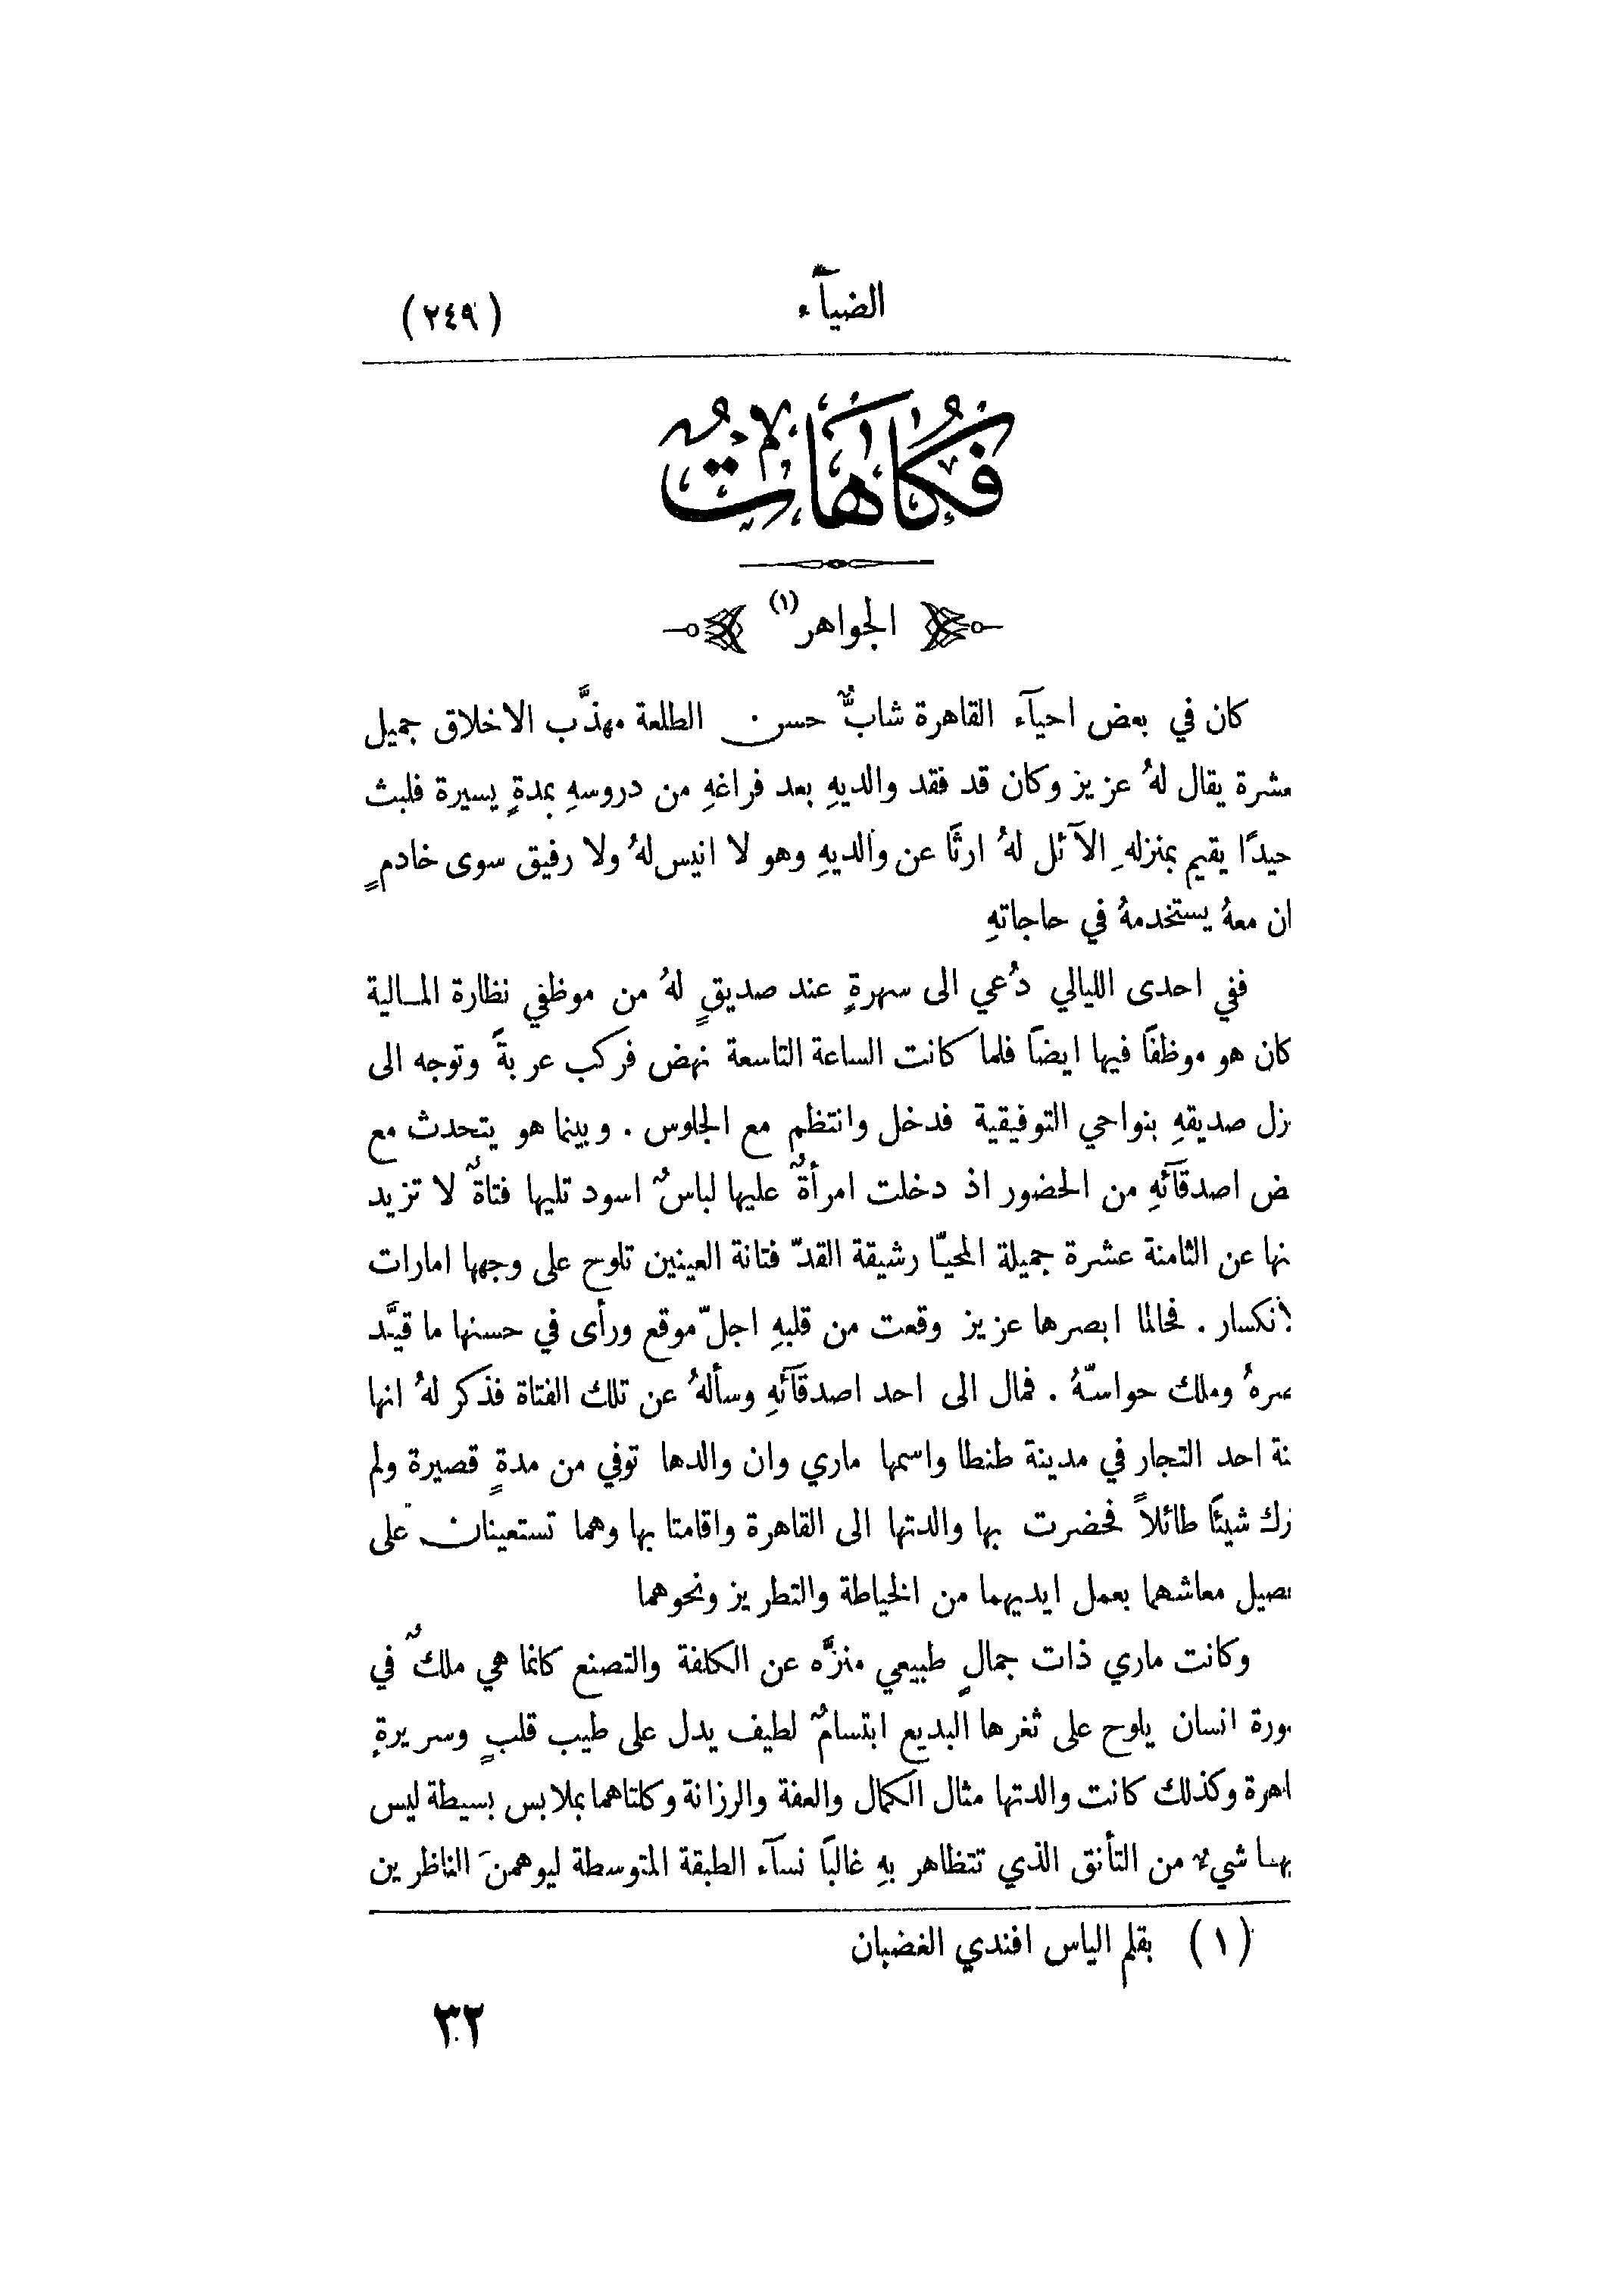 الضيآء
(٢٤٩)
فكاهات
الجواهر (١)
كان في بعض احيآء القاهرة شابٌّ حسن الطلعة مهذَّب الاخلاق جميل
عشرة يقال لهُ عزيز وكان قد فقد والديهِ بعد فراغهِ من دروسهِ بمدةٍ يسيرة فلبث
حيدًا يقيم بمنزلهِ الآئل لهُ ارثًا عن والديهِ وهو لا انيس لهُ ولا رفيق سوى خادمٍ
ان معهُ يستخدمهُ في حاجاتهِ
ففي احدى الليالي دُعي الى سهرةٍ عند صديقٍ لهُ من موظفي نظارة المالية
كان هو موظفًا فيها ايضًا فلما كانت الساعة التاسعة نهض فركب عربةً وتوجه الى
زل صديقهِ بنواحي التوفيقية فدخل وانتظم مع الجلوس . وبينما هو يتحدث مع
ض اصدقآئهِ من الحضور اذ دخلت امرأةٌ عليها لباسٌ اسود تليها فتاةٌ لا تزيد
نها عن الثامنة عشرة جميلة المحيّا رشيقة القدّ فتانة العينين تلوح على وجهها امارات
لانكسار . فحالما ابصرها عزيز وقعت من قلبهِ اجلّ موقع ورأى في حسنها ما قيَّد
صرهُ وملك حواسّهُ . فمال الى احد اصدقآئهِ وسألهُ عن تلك الفتاة فذكر لهُ انها
نة احد التجار في مدينة طنطا واسمها ماري وان والدها توفي من مدةٍ قصيرة ولم
رك شيئًا طائلاً فحضرت بها والدتها الى القاهرة واقامتا بها وهما تستعينان على
صيل معاشهما بعمل ايديهما من الخياطة والتطريز ونحوهما
وكانت ماري ذات جمالٍ طبيعي منزَّه عن الكلفة والتصنع كانما هي ملكٌ في
ورة انسان يلوح على ثغرها البديع ابتسامٌ لطيف يدل على طيب قلبٍ وسريرةٍ
اهرة وكذلك كانت والدتها مثال الكمال والعفة والرزانة وكلتاهما بملابس بسيطة ليس
يهما شيء من التأنق الذي تتظاهر بهِ غالبًا نسآء الطبقة المتوسطة ليوهمنَ الناظرين
(١) بقلم الياس افندي الغضبان
٣٢